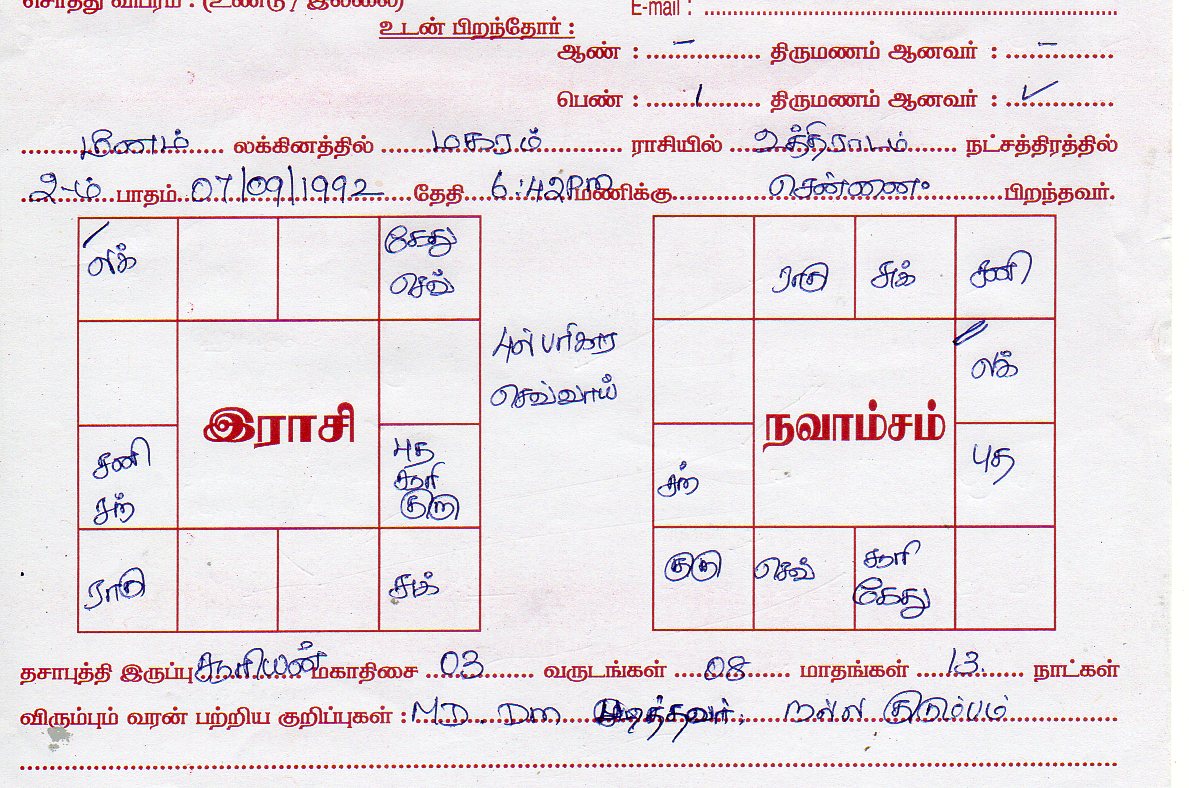 சொத்து விபரம் : (உண்டு / இல்லை)
E-mail : ........................
உடன் பிறந்தோர் :
ஆண் : ..–.. திருமணம் ஆனவர் : ..–..
பெண் : ..1.. திருமணம் ஆனவர் : ..✓..
மீனம் லக்கினத்தில் மகரம் ராசியில் உத்திராடம் நட்சத்திரத்தில்
2-ம் பாதம் 07/09/1992 தேதி 6:42PM மணிக்கு சென்னை பிறந்தவர்.
லக்
கேது
செவ்
ராகு
சுக்
சனி
4ல் பரிகார
செவ்வாய்
லக்
இராசி
நவாம்சம்
சனி
சந்
புத
சூரி
குரு
சந்
புத
ராகு
சுக்
குரு
செவ்
சூரி
கேது
தசாபுத்தி இருப்பு சூரியன் மகாதிசை 03 வருடங்கள் 08 மாதங்கள் 13 நாட்கள்
விரும்பும் வரன் பற்றிய குறிப்புகள் : MD. Dm படித்தவர், நல்ல குடும்பம்